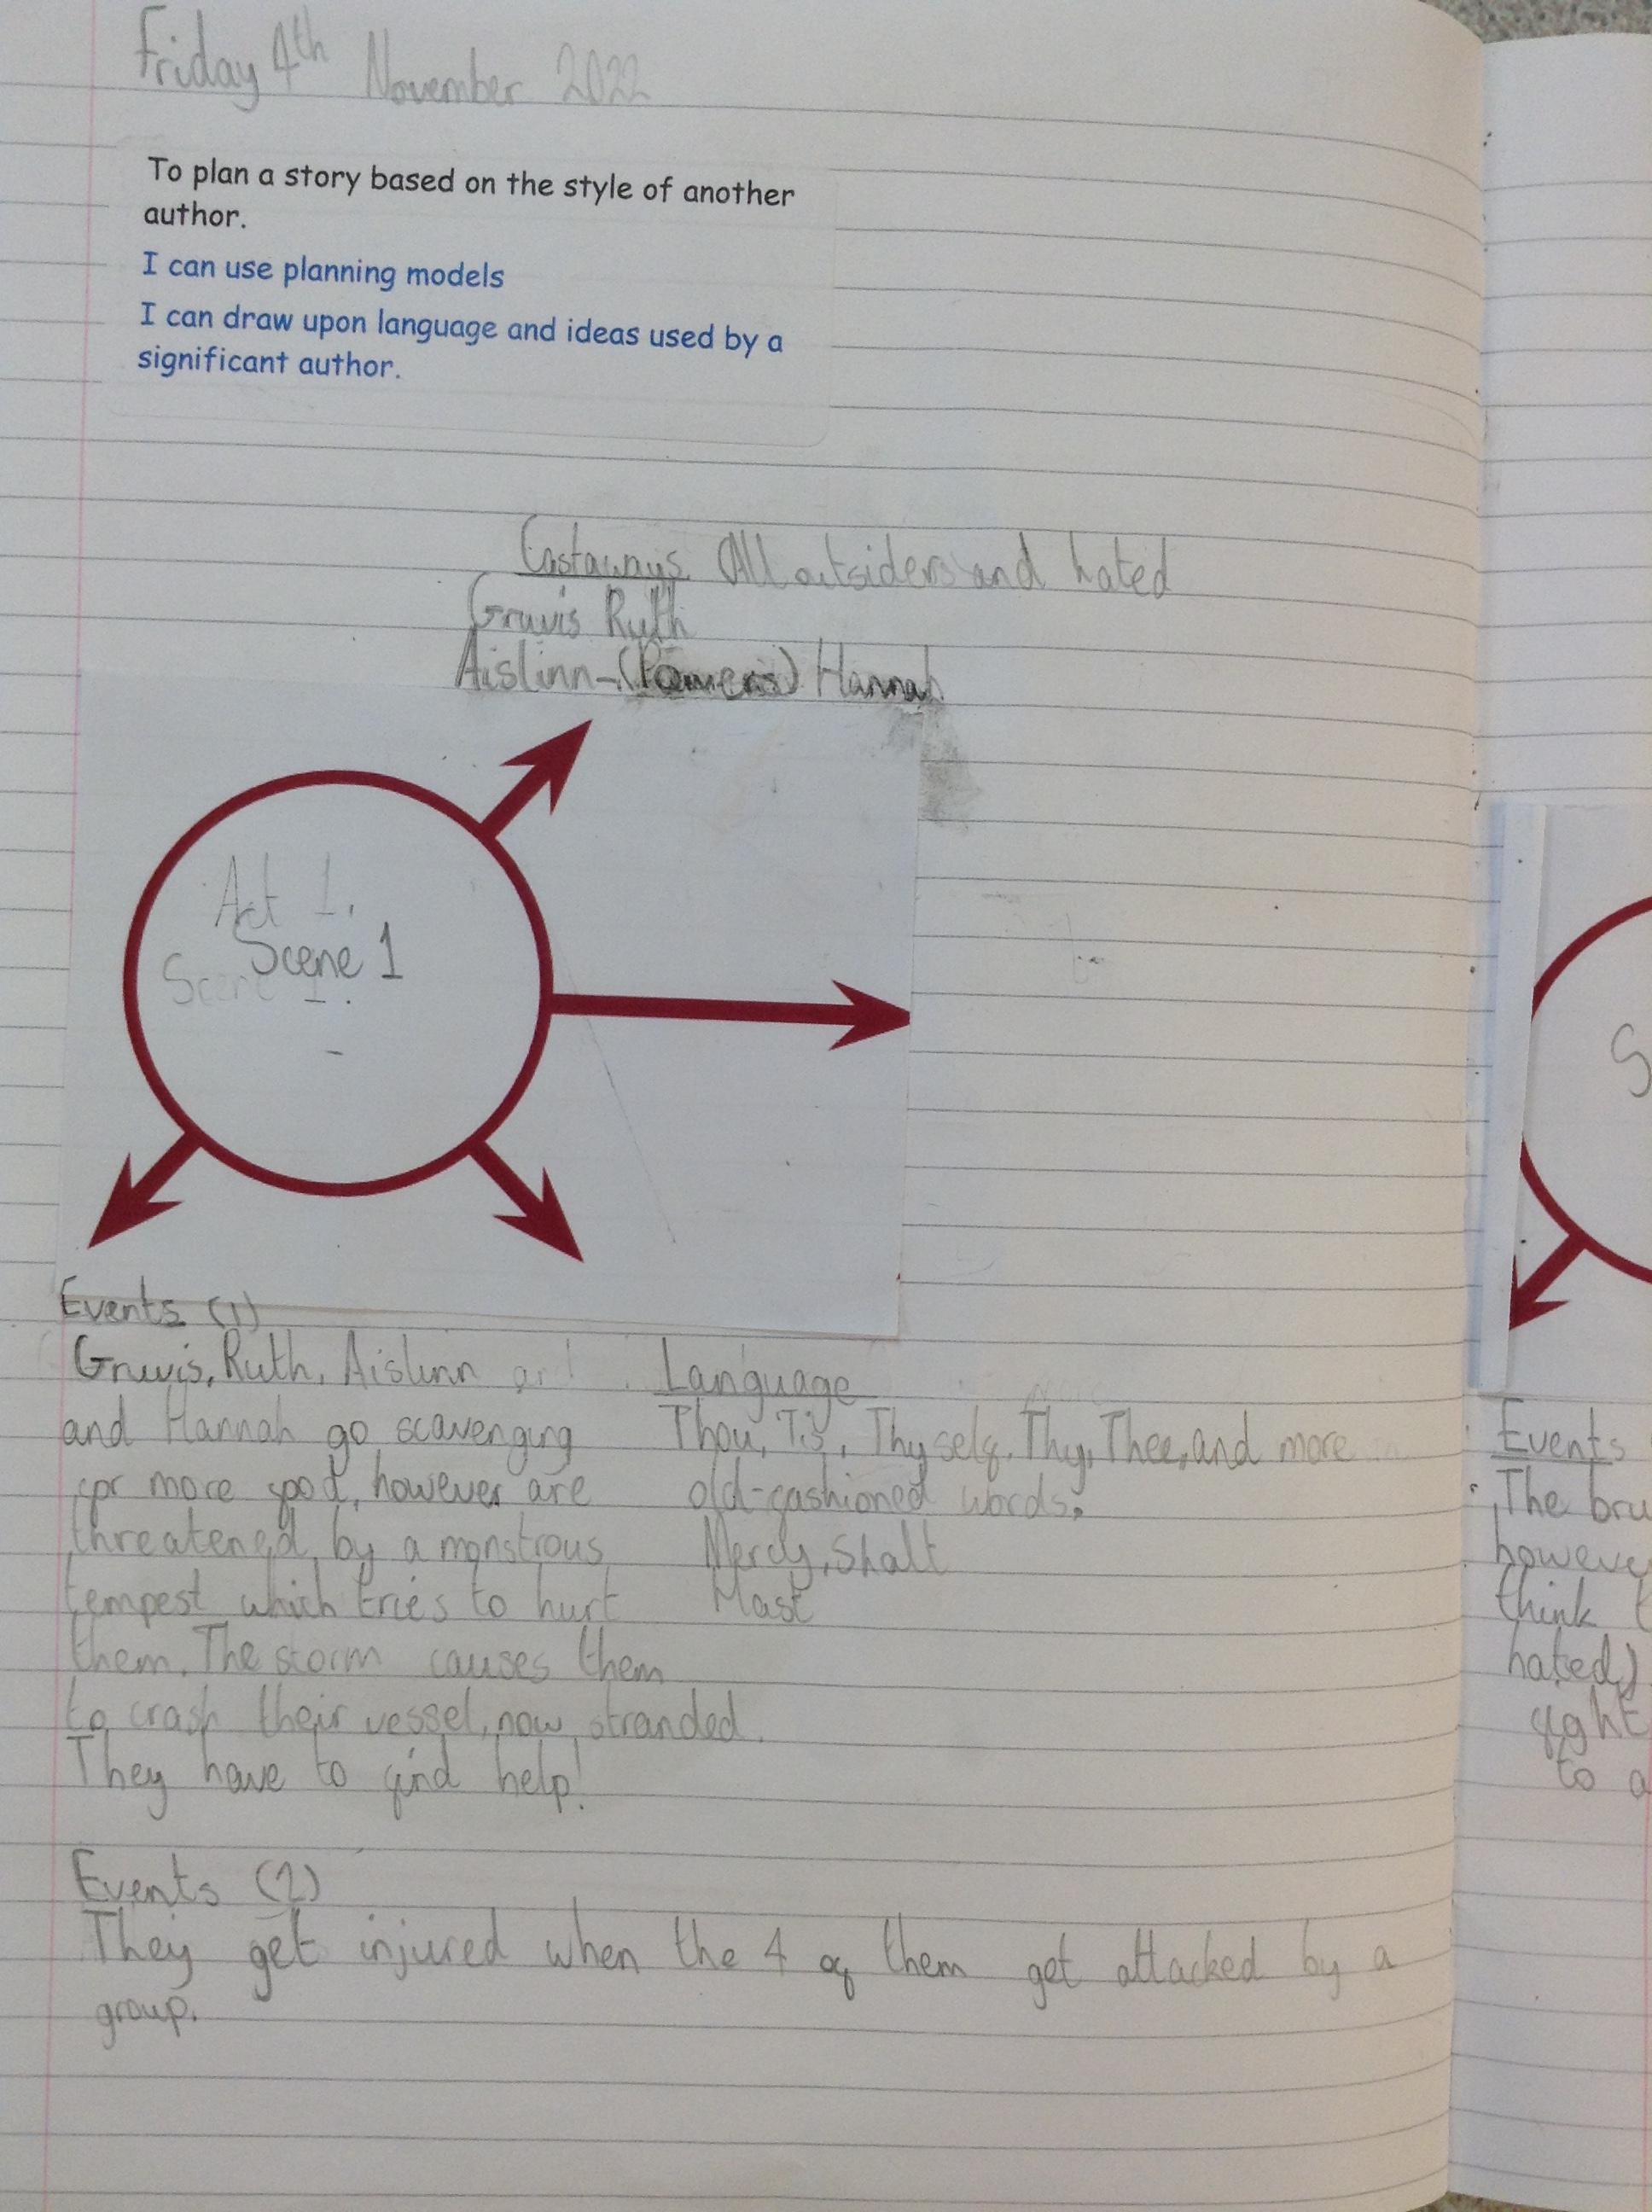 Friday 4th November 2022
To plan a story based on the style of another
author.
I can use planning models
I can draw upon language and ideas used by a
significant author.
Castaways. All outsiders and hated
Gruvis Ruth
Aislinn-(Powers) Hannah
Act 1.
Scene 1
Scene 1.
Events (1)
Gruvis, Ruth, Aislinn
and Hannah go scavenging
for more food, however are
threatened by a monstrous
tempest which tries to hurt
them. The storm causes them
to crash their vessel, now stranded.
They have to find help!
Language
Thou, Tis, Thyself, Thy, Thee, and more
old-fashioned words.
Mercy, Shalt
Mast
Events (2)
They get injured when the 4 of them get attacked by a
group.
S
Events
The bru
howeve
think t
hated)
fight
to a